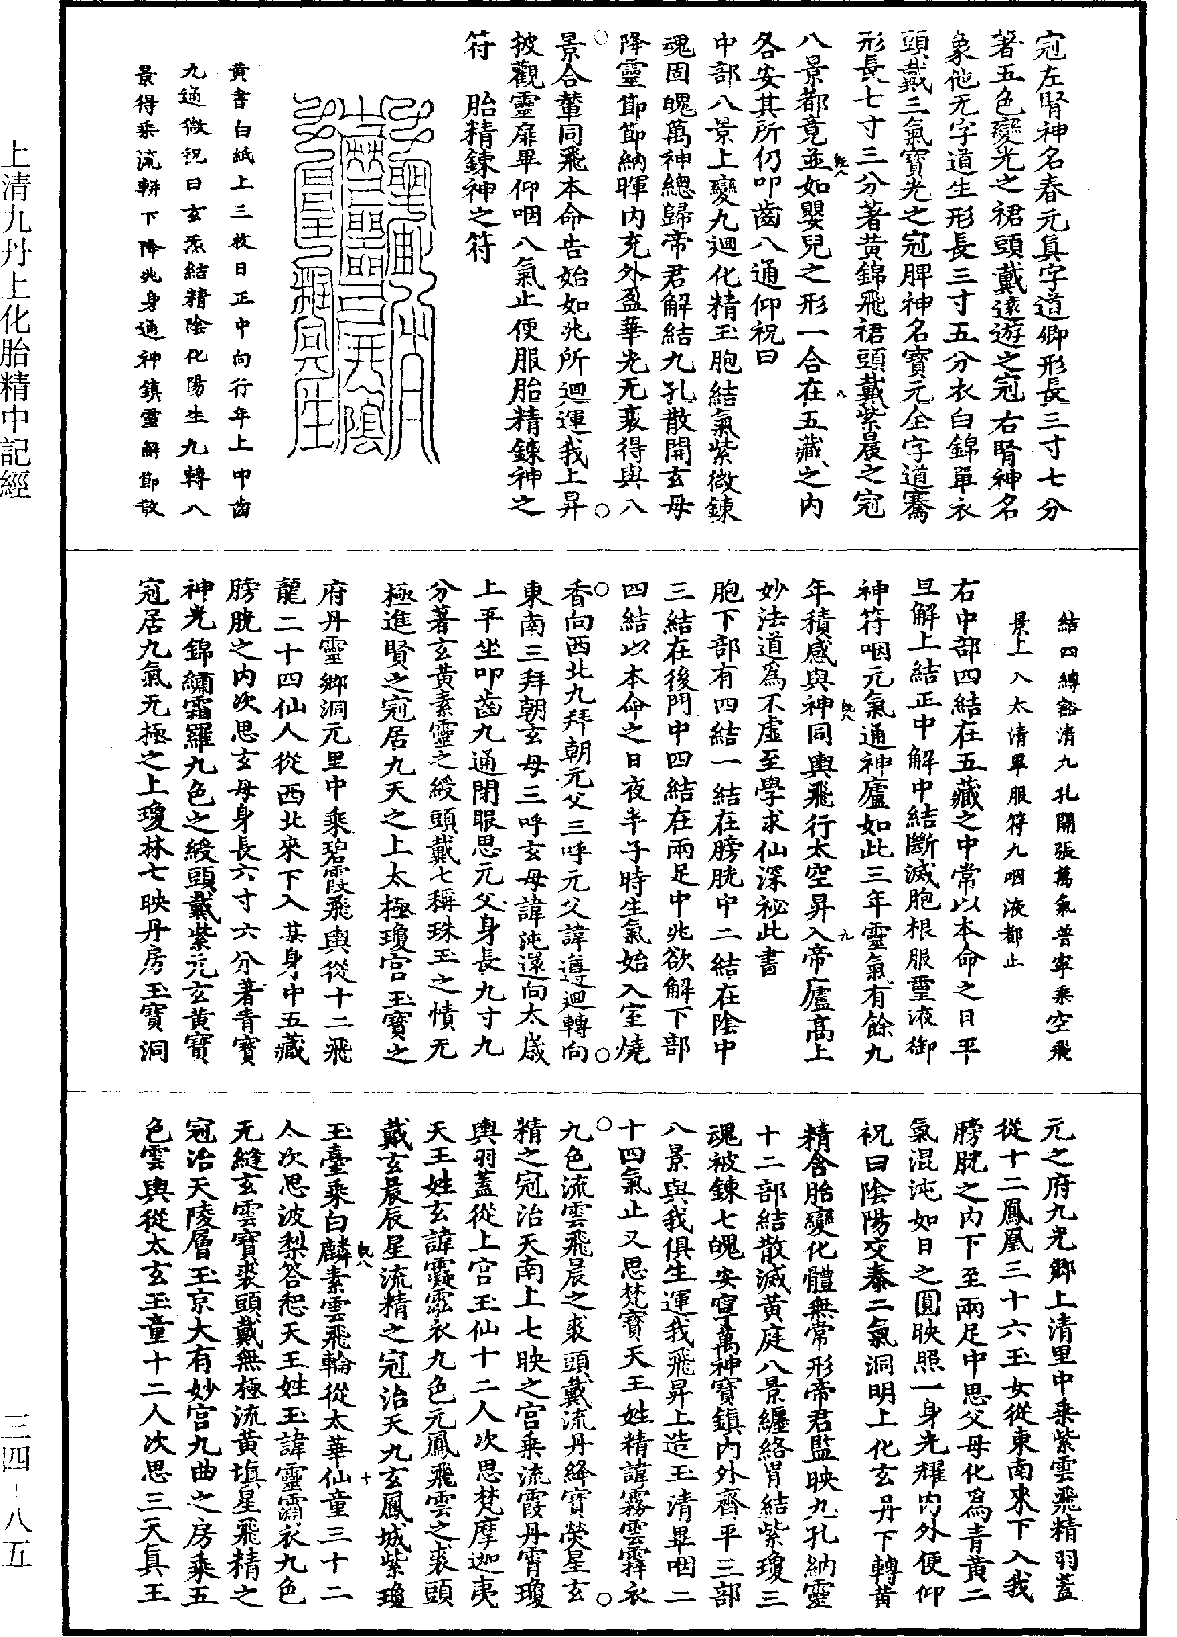 冠左腎神名春元真字道卿形長三寸七分
著五色變光之裙頭戴遠遊之冠右腎神名
象他无字道生形長三寸五分衣白錦單衣
頭戴三氣寶光之冠脾神名寶元全字道騫
形長七寸三分著黃錦飛裙頭戴紫晨之冠
八景都竟並如嬰兒之形一合在五藏之內
各安其所仍叩齒八通仰祝曰
中部八景上變九迴化精玉胞結氣紫微鍊
魂固魄萬神總歸帝君解結九孔散開玄母
降靈節節納暉內充外盈華光无衰得與八
景合輦同飛本命告始如兆所迴運我上昇
披觀靈扉畢仰咽八氣止便服胎精鍊神之
符 胎精鍊神之符
黃書白紙上三枚日正中向行年上叩齒
九通微祝曰玄炁結精陰化陽生九轉八
景得乘流軿下降兆身通神鎮靈解節散
結四縛豁清九孔開張萬氣普寧乘空飛
景上入太清畢服符九咽液都止
右中部四結在五藏之中常以本命之日平
旦解上結正中解中結斷滅胞根服璽液御
神符咽元氣通神廬如此三年靈氣有餘九
年積感與神同輿飛行太空昇入帝廬高上
妙法道爲不虛至學求仙深祕此書
胞下部有四結一結在膀胱中二結在陰中
三結在後門中四結在兩足中兆欲解下部
四結以本命之日夜半子時生氣始入室燒
香向西北九拜朝元父三呼元父諱遵迴轉向
東南三拜朝玄母三呼玄母諱沌還向太歲
上平坐叩齒九通閉眼思元父身長九寸九
分著玄黃素靈之綬頭戴七稱珠玉之幘无
極進賢之冠居九天之上太極瓊宮玉寶之
府丹靈鄉洞元里中乘碧霞飛輿從十二飛
龍二十四仙人從西北來下入某身中五藏
膀胱之內次思玄母身長六寸六分著青寶
神光錦繡霜羅九色之綬頭戴紫元玄黃寶
冠居九氣无極之上瓊林七映丹房玉寶洞
元之府九光鄉上清里中乘紫雲飛精羽蓋
從十二鳳凰三十六玉女從東南來下入我
膀胱之內下至兩足中思父母化爲青黃二
氣混沌如日之圓映照一身光耀內外便仰
祝曰陰陽交泰二氣洞明上化玄丹下轉黃
精含胎變化體無常形帝君監映九孔納靈
十二部結散滅黃庭八景纏絡胃結紫瓊三
魂被鍊七魄安寧萬神寶鎮內外齊平三部
八景與我俱生運我飛昇上造玉清畢咽二
十四氣止又思梵寶天王姓精諱霧雲霏衣
九色流雲飛晨之裘頭戴流丹絳寶熒星玄
精之冠治天南上七映之宮乘流霞丹霄瓊
輿羽蓋從上宮玉仙十二人次思梵摩迦夷
天王姓玄諱霆霐衣九色元鳳飛雲之裘頭
戴玄晨辰星流精之冠治天九玄鳳城紫瓊
玉臺乘白麟素雲飛輪從太華仙童三十二
人次思波梨答惒天王姓玉諱靈霸衣九色
无縫玄雲寶裘頭戴無極流黃填星飛精之
冠治天陵層玉京大有妙宮九曲之房乘五
色雲輿從太玄玉童十二人次思三天真王
上清九丹上化胎精中記經
三四－八五